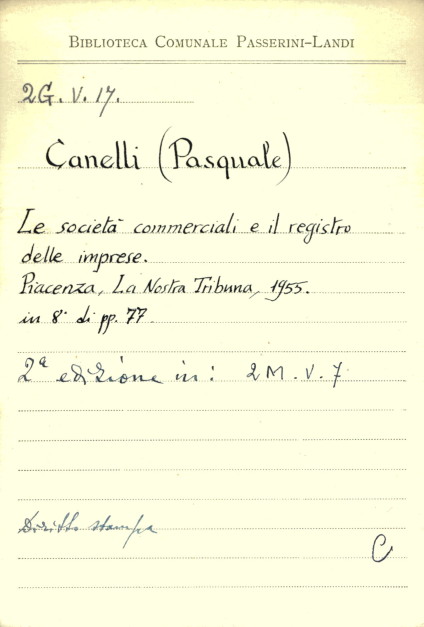 BIBLIOTECA COMUNALE PASSERINI-LANDI
2G. V. 17.
Canelli (Pasquale)
Le società commerciali e il registro
delle imprese.
Piacenza, La Nostra Tribuna, 1955.
in 8° di pp. 77.
2ª edizione in: 2M. V. 7
Diritto stampa
C